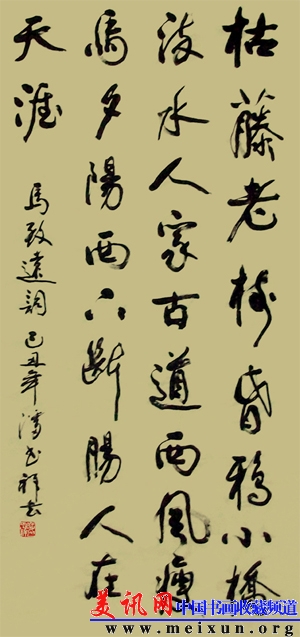 枯藤老樹昏鴉小橋
流水人家古道西風瘦
馬夕陽西下斷腸人在
天涯
馬致遠詞 己丑年
美讯网 中国书画收藏频道
www.meixun.org